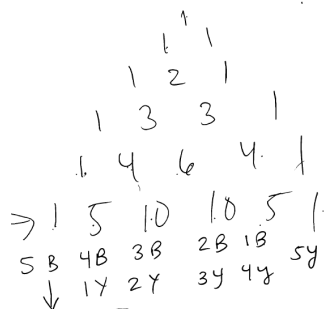 1
1 1
1 2 1
1 3 3 1
1 4 6 4 1
→ 1 5 10 10 5 1
5B 4B 3B 2B 1B 5Y
1Y 2Y 3Y 4Y
↓